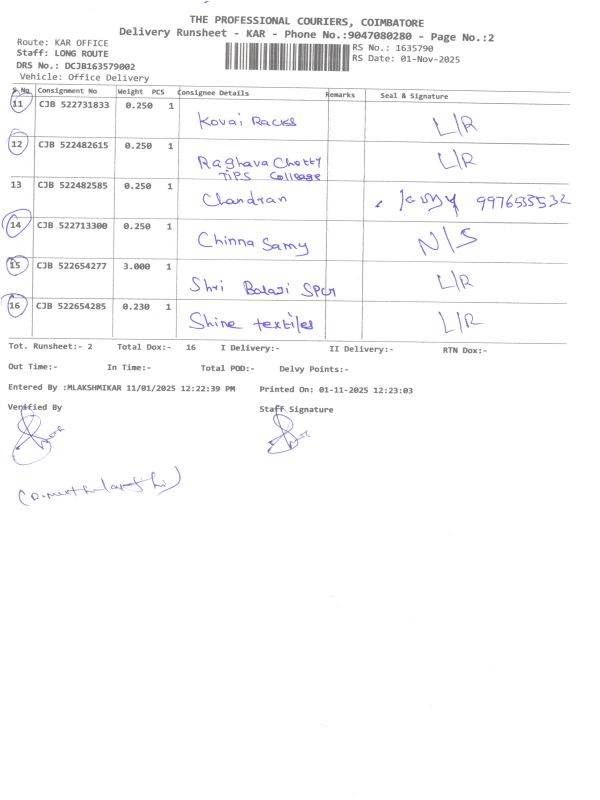 THE PROFESSIONAL COURIERS, COIMBATORE
Delivery Runsheet - KAR - Phone No.:9047080280 - Page No.:2
Route: KAR OFFICE
Staff: LONG ROUTE
DRS No.: DCJB163579002
Vehicle: Office Delivery
RS No.: 1635790
RS Date: 01-Nov-2025
S.No Consignment No Weight PCS Consignee Details Remarks Seal & Signature
11 CJB 522731833 0.250 1 Kovai Racks L/R
12 CJB 522482615 0.250 1 Raghava Chetty L/R
TIPS College
13 CJB 522482585 0.250 1 Chandran 9976535532
14 CJB 522713300 0.250 1 Chinna Samy N/S
15 CJB 522654277 3.000 1 Shri Balaji L/R
16 CJB 522654285 0.230 1 Shine textiles L/R
Tot. Runsheet:- 2 Total Dox:- 16 I Delivery:- II Delivery:- RTN Dox:-
Out Time:- In Time:- Total POD:- Delvy Points:-
Entered By :MLAKSHMIKAR 11/01/2025 12:22:39 PM Printed On: 01-11-2025 12:23:03
Verified By Staff Signature